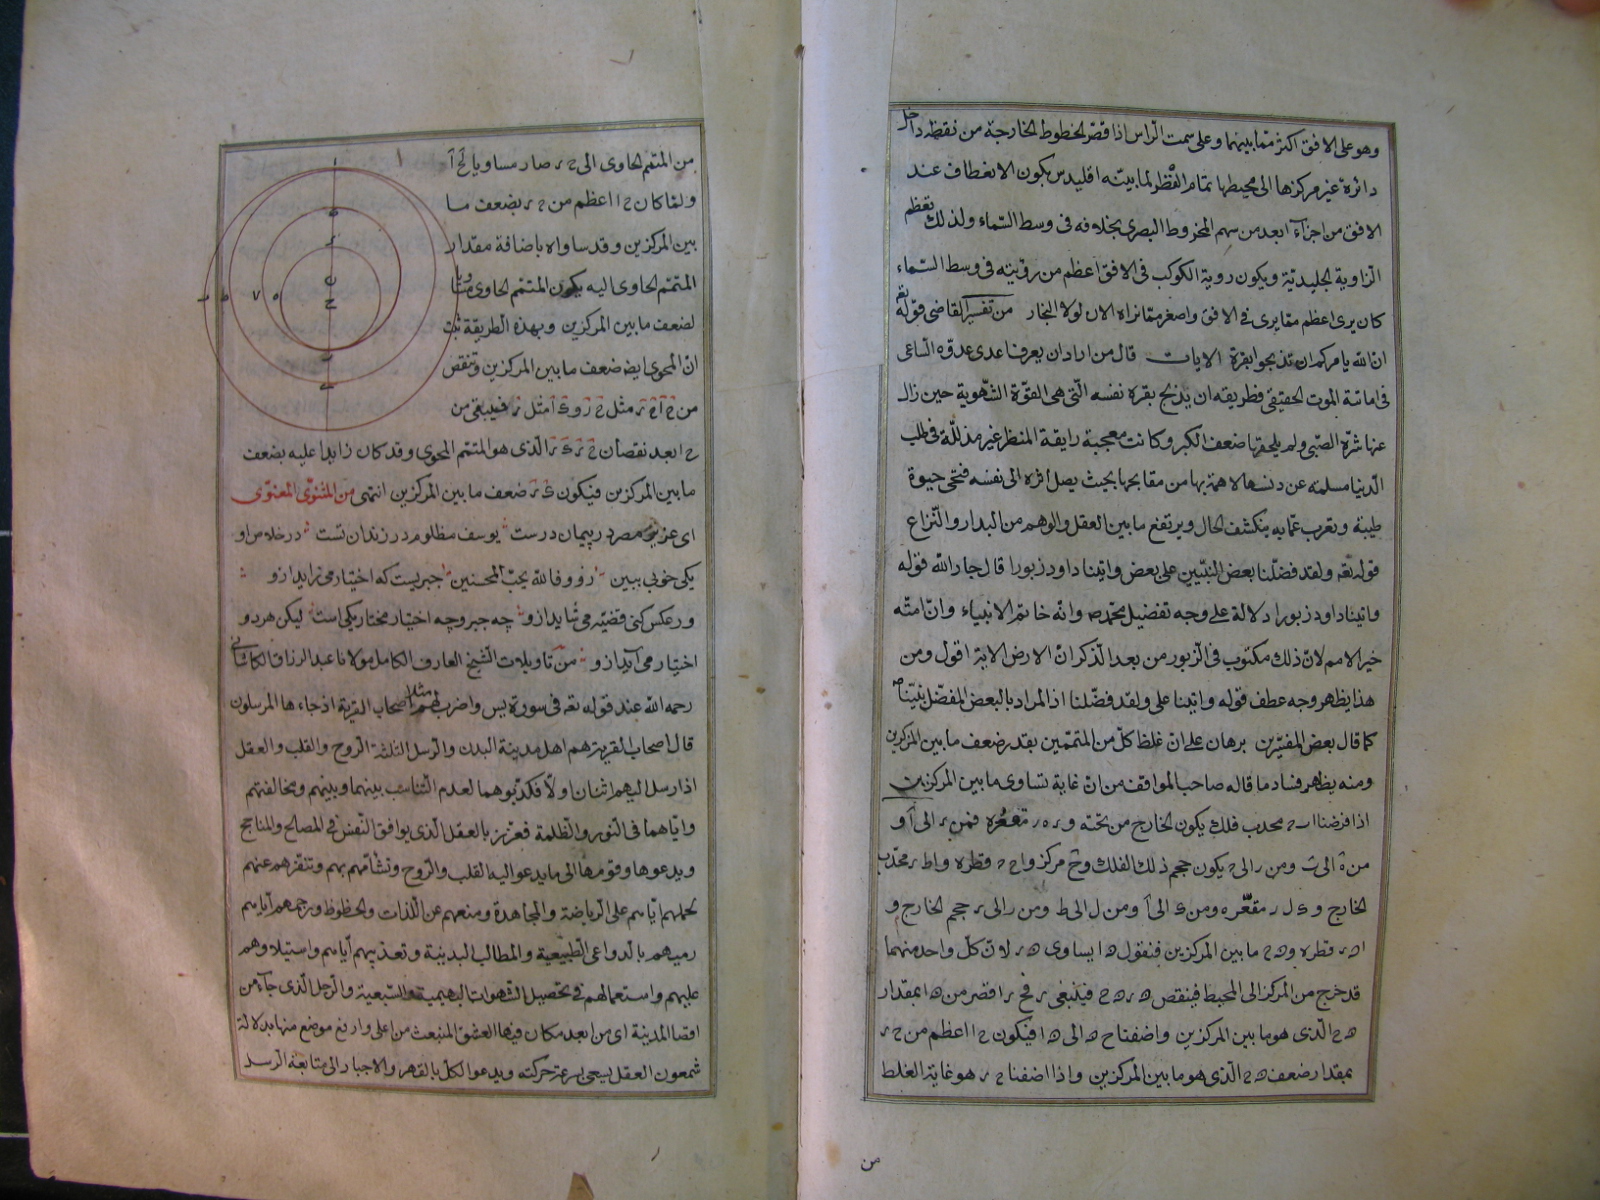 وهو على الافق اكثر مما بينهما وعلى سمت الراس اذا قصر الخطوط الخارجة من نقطه داخل
دائرة غير مركزها الى محيطها تمام القطر لما بيّنه اقليدس يكون الانعطاف عند
الافق من اجزاء ابعد من سهم المخروط البصرى بخلافه فى وسط السماء ولذلك تعظم
الزاوية الجليدية ويكون روية الكوكب فى الافق اعظم من رؤيته فى وسط السماء
كان يرى اعظم مما يرى فى الافق واصغر مما نراه الان لولا البخار من تفسير القاضى قوله تعه
ان الله يامركم ان تذبحوا بقرة الايات قال من اراد ان يعرف اعدى عدوه الساعى
فى اماتته الموت الحقيقى فطريقه ان يذبح بقرة نفسه التى هى القوة الشهوية حين زال
عنها شره الصبى ولم يلحقها ضعف الكبر وكانت معجبة رايقة المنظر غير مذللة فى طلب
الدنيا مسلمه عن دنسها لا سمة بها من مقابحها بحيث يصل اثره الى نفسه فتحى حيوة
طيبة وتعرب عما به ينكشف الحال ويرتفع ما بين العقل والوهم من التدار والنزاع
قوله تعه ولقد فضلنا بعض النبيين على بعض واتينا داود زبورا قال جار الله قوله
واتينا داود زبورا دلالة على وجه تفضيل محمد ص وانه خاتم الانبياء وان امته
خير الامم لان ذلك مكتوب فى الزبور من بعد الذكر ان الارض الاية اقول ومن
هذا يظهر وجه عطف قوله واتينا على ولقد فضلنا اذ المراد بالبعض المفضل نبينا ص
كما قال بعض المفسرين برهان على ان غلظ كل من المتممين بقدر ضعف ما بين المركزين
ومنه يظهر فساد ما قاله صاحب المواقف من ان غاية تساوى ما بين المركزين
اذا فرضنا محدب فلك يكون الخارج من تحته مقعره فمن الى آ و
من ه الى ومن ر الى ح يكون حجم ذلك الفلك و ح مركز و ا ح قطره و ا ط محدب
الخارج و ل ر مقعره ومن الى آ ومن ل الى ط ومن ر الى حجم الخارج و
ا ه ر قطره و ه ح ما بين المركزين فنقول ه ا يساوى ه ر لان كل واحد منهما
قد خرج من المركز الى المحيط فينقص ه ر ه ح فينبغى ر فح ر اقصر من ه ا بمقدار
ه ح الذى هو ما بين المركزين واضفنا ح ه الى ه ا فيكون ح ا اعظم من ح ر
بمقدار ضعف ه ح الذى هو ما بين المركزين واذا اضفنا ح ر هو غاية الغلظ
من
من المتمم الحاوى الى ح ر صار مساويا لح آ
ولما كان ح ا اعظم من ح ر بضعف ما
بين المركزين وقد ساواه باضافة مقدار
المتمم الحاوى اليه يكون المتمم الحاوى مساويا
لضعف ما بين المركزين وبهذه الطريقة ثبت
ان المحوى ايضا ضعف ما بين المركزين وتنقص
من مثل فيبقى من
ح ا بعد نقصان الذى هو المتمم المحوى وقد كان زايدا عليه بضعف
ما بين المركزين فيكون ضعف ما بين المركزين انتهى من المثنوى المعنوى
اى عزيز مصر در پيمان درست يوسف مظلوم در زندان تست در خلاص او
يكى خوبى ببين زود فالله يحب المحسنين جبريست كه اختيار مى زايد ازو
ور عكس كنى قضيه مى شايد ازو چه جبر وچه اختيار مختار يكى است ليكن هر دو
اختيار مى آيد ازو من تاويلات الشيخ العارف الكامل مولانا عبد الرزاق الكاشانى
رحمه الله عند قوله تعه فى سورة يس واضرب لهم مثلا اصحاب القرية اذ جاءها المرسلون
قال اصحاب القرية هم اهل مدينة البدن والرسل الثلثة الروح والقلب والعقل
اذ ارسل اليهم اثنان اولا فكذبوهما لعدم التناسب بينهما وبينهم ومخالفتهم
واياهما فى النور والظلمة فعززنا بالعقل الذى يوافق النفس فى المصالح والمناجح
ويدعوها وقومها الى ما يدعو اليه القلب والروح وتشأمهم بهم وتنفرهم عنهم
لحملهم اياهم على الرياضة والمجاهدة ومنعهم عن اللذات والحظوظ ورجمهم اياهم
رميهم بالدواعى الطبيعية والمطالب البدنية وتعذيبهم اياهم واستيلاوهم
عليهم واستعمالهم فى تحصيل الشهوات البهيمية والسبعية والرجل الذى جاء من
اقصا المدينة اى من ابعد مكان فيها العشق المنبعث من اعلى وارفع موضع منها بدلالة
شمعون العقل يسعى بسرعة حركته ويدعو الكل بالقهر والاجبار الى متابعة الرسل